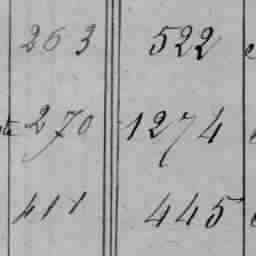 263 522
270 1274
411 445